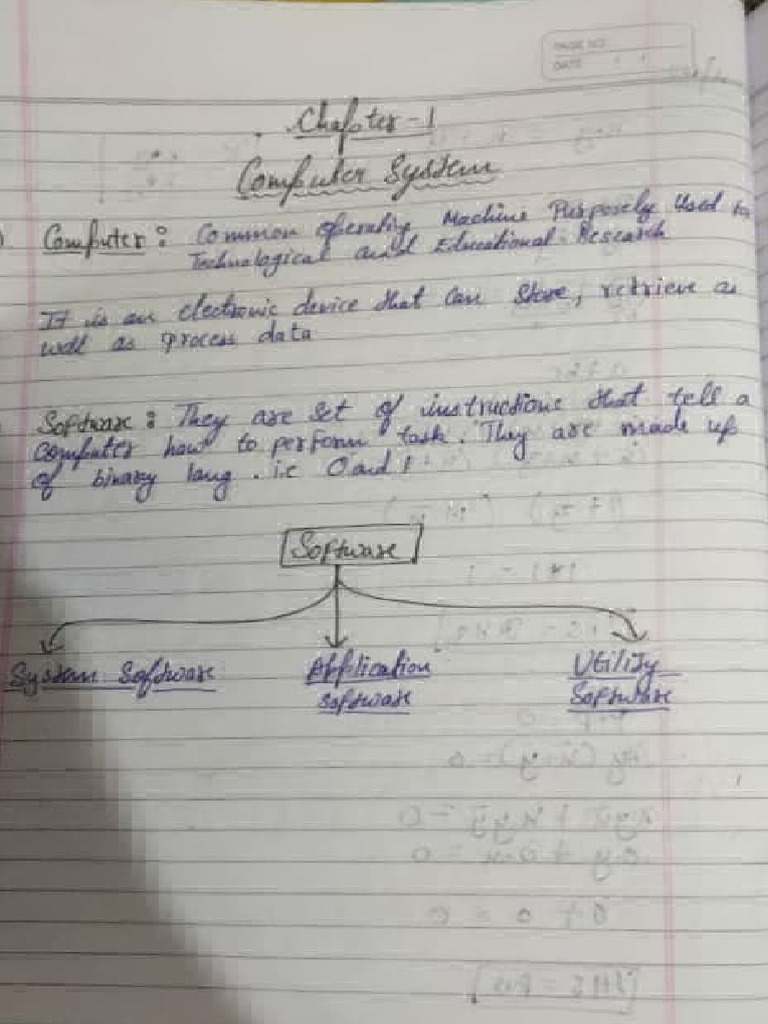 PAGE NO.
DATE
Chapter-1
Computer System
Computer: Common operating Machine Purposely Used for
Technological and Educational Research
It is an electronic device that can store, retrieve as
well as process data
Software: They are set of instructions that tell a
computer how to perform task. They are made up
of binary lang. i.e 0 and 1
Software
System Software
Application
Software
Utility
Software